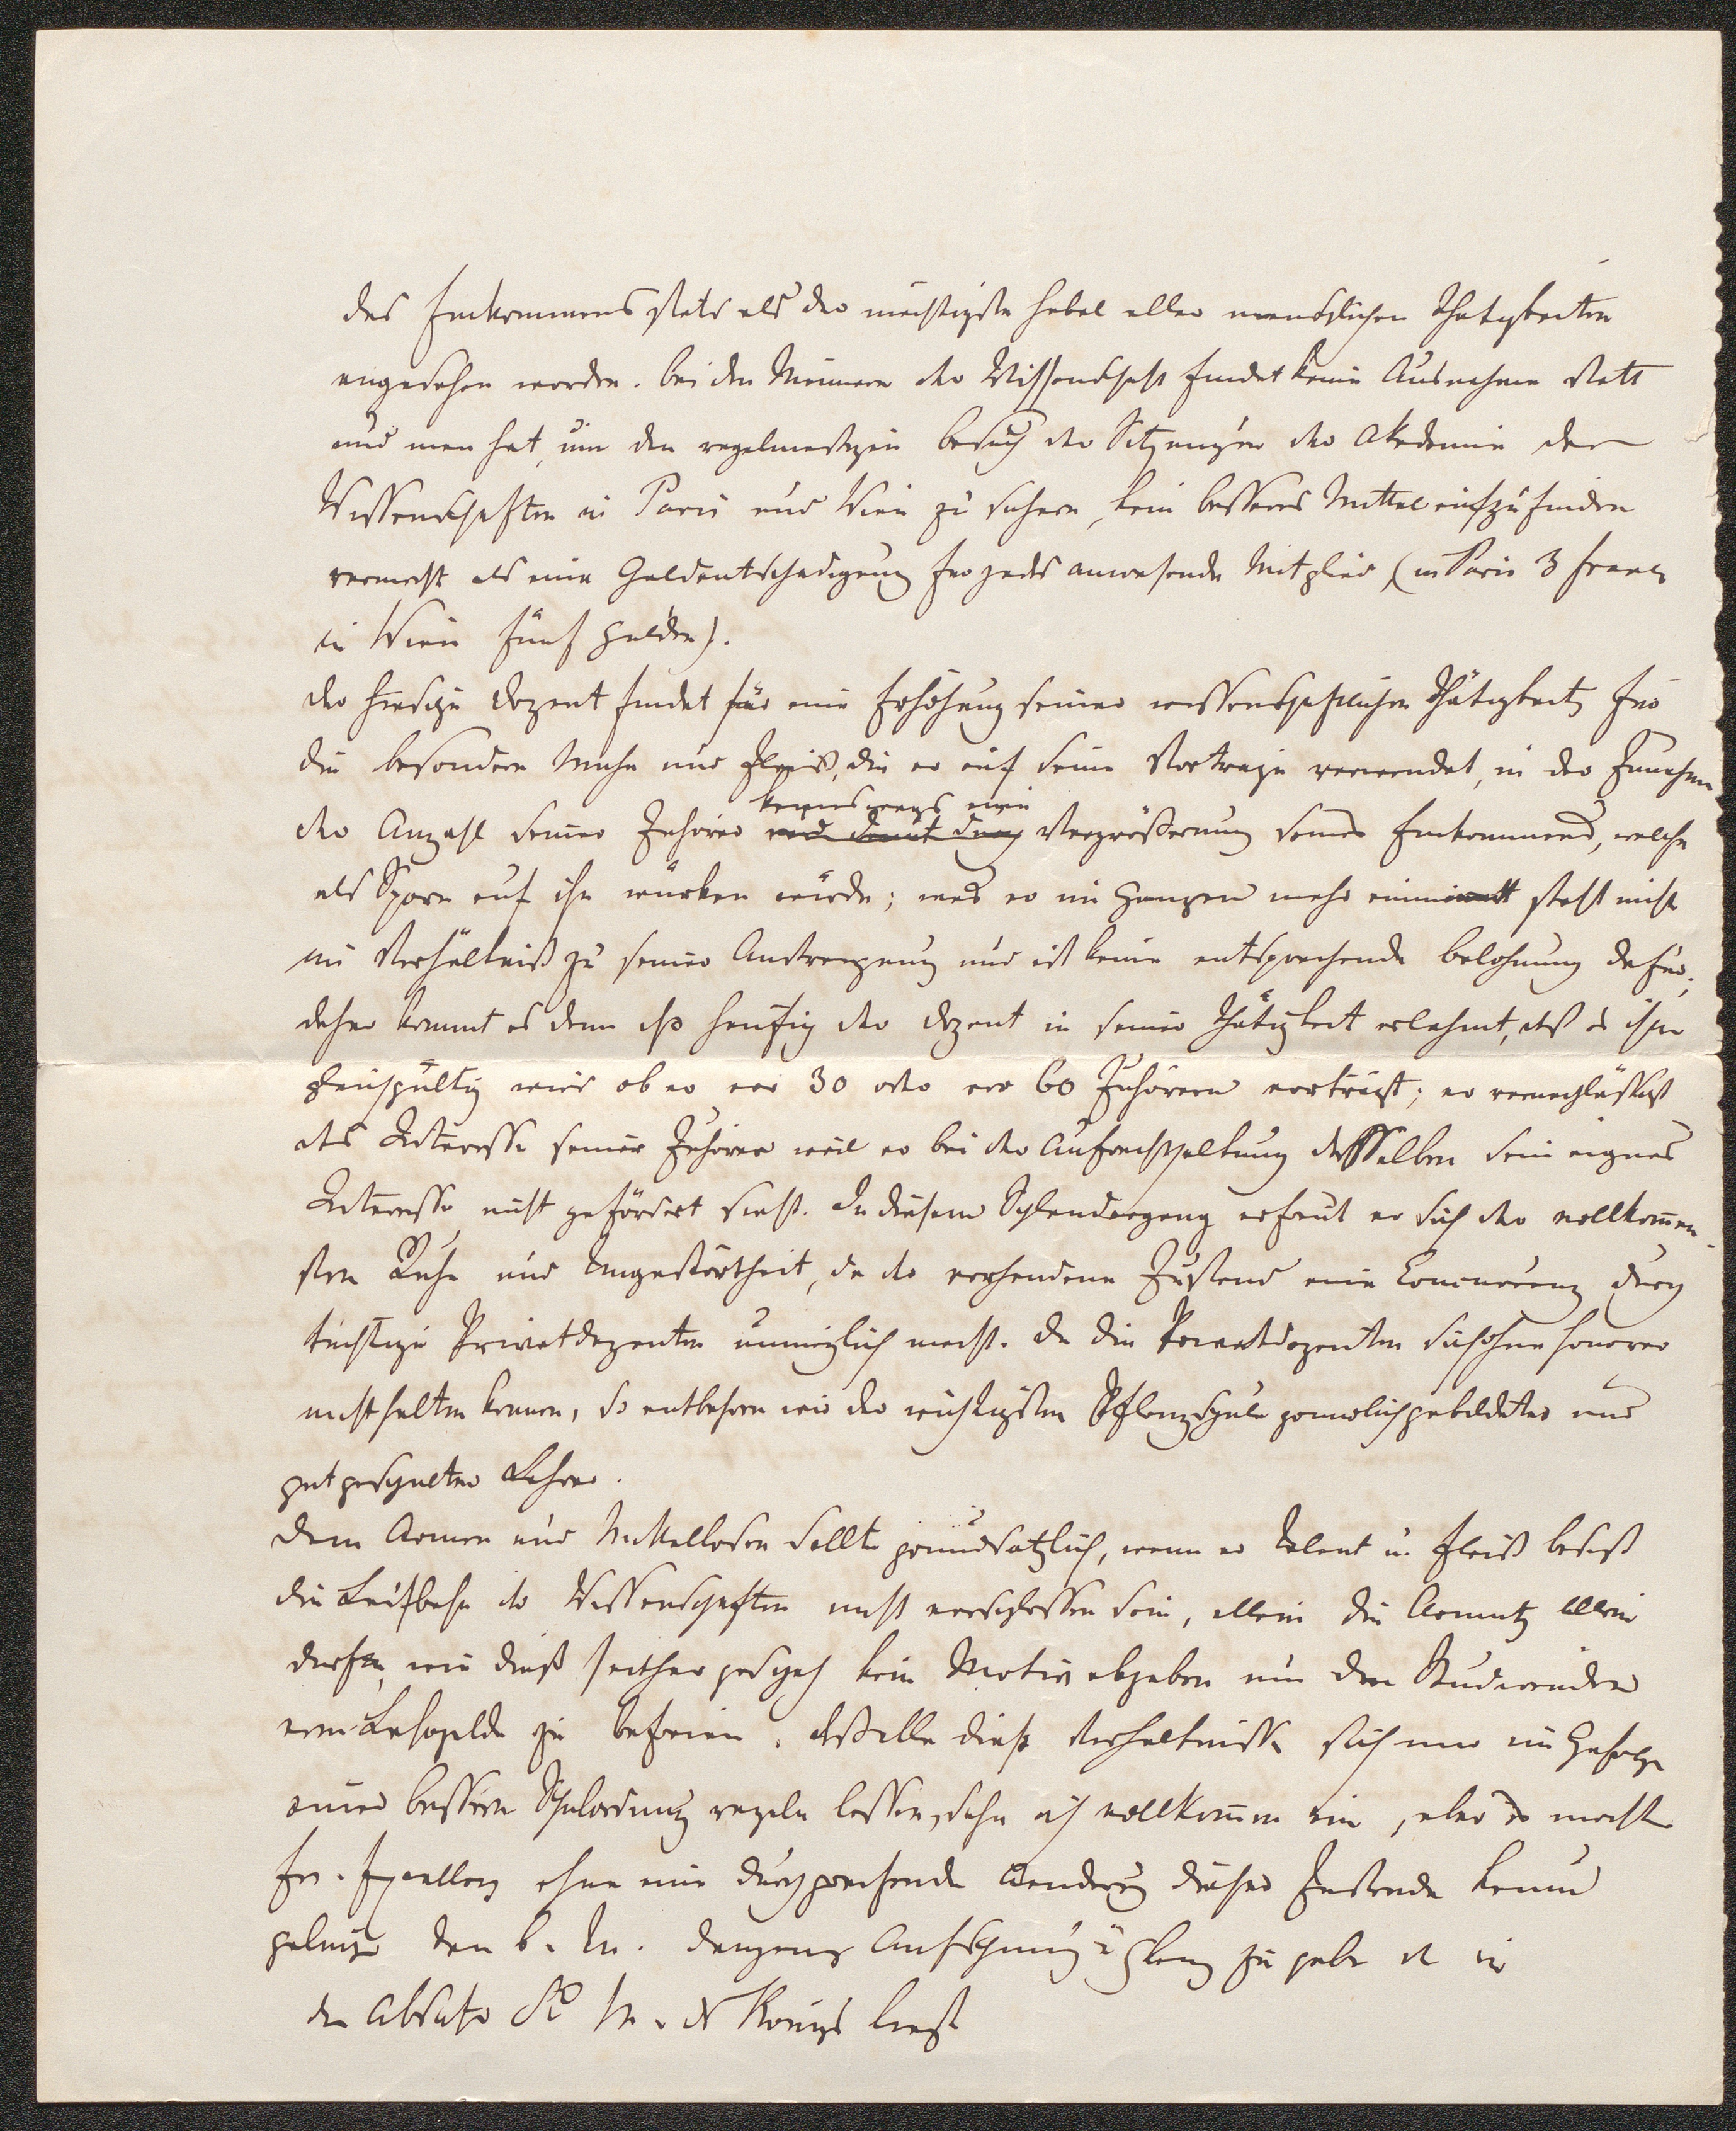 des Einkommens stets als der mächtigste Hebel aller menschlichen Thätigkeiten
angesehen worden. bei den Männern der Wissenschaft findet keine Ausnahme statt
und man hat, um den regelmäßigen besuch der Sitzungen der Akademie der
Wissenschaften in Paris und Wien zu sichern, kein besseres Mittel aufzufinden
vermocht als eine Geldentschädigung für jedes anwesende Mitglied (in Paris 3 Francs
in Wien fünf Gulden).
der hiesige Dozent findet für eine Erhöhung seiner wissenschaftlichen Thätigkeit, für
die besondere Mühe und Fleiß, die er auf seine Vorträge verwendet, in der Zunahme
keineswegs eine
der Anzahl seiner Zuhörer und damit Vergrößerung seines Einkommens, welche
als Sporn auf ihn würken würde; was er im Ganzen mehr einnimmt steht nicht
im Verhältniß zu seiner Anstrengung und ist keine entsprechende belohnung dafür;
daher kommt es denn daß häufig der Dozent in seiner Thätigkeit erlahmt, daß es ihm
gleichgültig wird ob er vor 30 oder vor 60 Zuhörern vorträgt; er vernachläßigt
das Interesse seiner Zuhörer weil er bei der Aufrechthaltung desselben sein eignes
Interesse nicht gefördert sieht. In diesem Schlendergang erfreut er sich der vollkommen-
sten Ruhe und Ungestörtheit, da der vorhandene Zustand eine Concurrenz durch
tüchtige Privatdozenten unmöglich macht. da die Privatdozenten sich ohne Honorar
nicht halten können, so entbehren wir der wichtigsten Pflanzschule gründlich gebildeter und
gut geschulter Lehrer.
dem Armen und Mittellosen sollte grundsätzlich, wenn er Talent u. Fleiß besitzt
die Laufbahn der Wissenschaften nicht verschlossen sein, allein die Armuth allein
dürfte, wie dieß seither geschah kein Motiv abgeben um den Studirenden
vom Lehrgelde zu befreien. daß alle diese Verhältnisse sich nur im Gefolge
einer bessern Schulordnung regeln lassen, sehe ich vollkommen ein, aber es möchte
Ew. Excellenz ohne eine durchgreifende Aenderung dieser Zustände kaum
gelingen den Aufschwung u Glanz zu geben der in
der Absicht Sr M. des Königs liegt